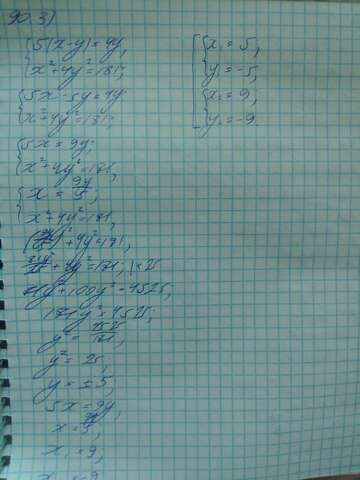 90. 3)
{5(x-y)=4y,
{x²+4y²=181;
{5x-5y=4y;
{x²+4y²=181;
{5x=9y;
{x²+4y²=181,
{x=9y/5;
x²+4y²=181,
(9y/5)²+4y²=181,
81y²/25+4y²=181; |×25
81y²+100y²=4525;
181y²=4525;
y²=4525/181;
y²=25;
y=±5;
5x=9y,
x₁=9;
[{x₁=5;
{y₁=-5;
{x₂=9;
{y₂=-9